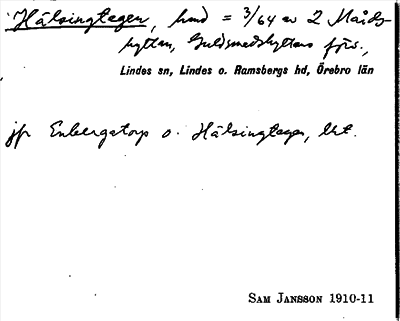 Hälsingtegen, hmd = 3/64 av 2 Mårds-
hyttan, Guldsmedshyttans förs.,
Lindes sn, Lindes o. Ramsbergs hd, Örebro län
jfr Enbergstorp o. Hälsingtegen, lht.
SAM JANSSON 1910-11